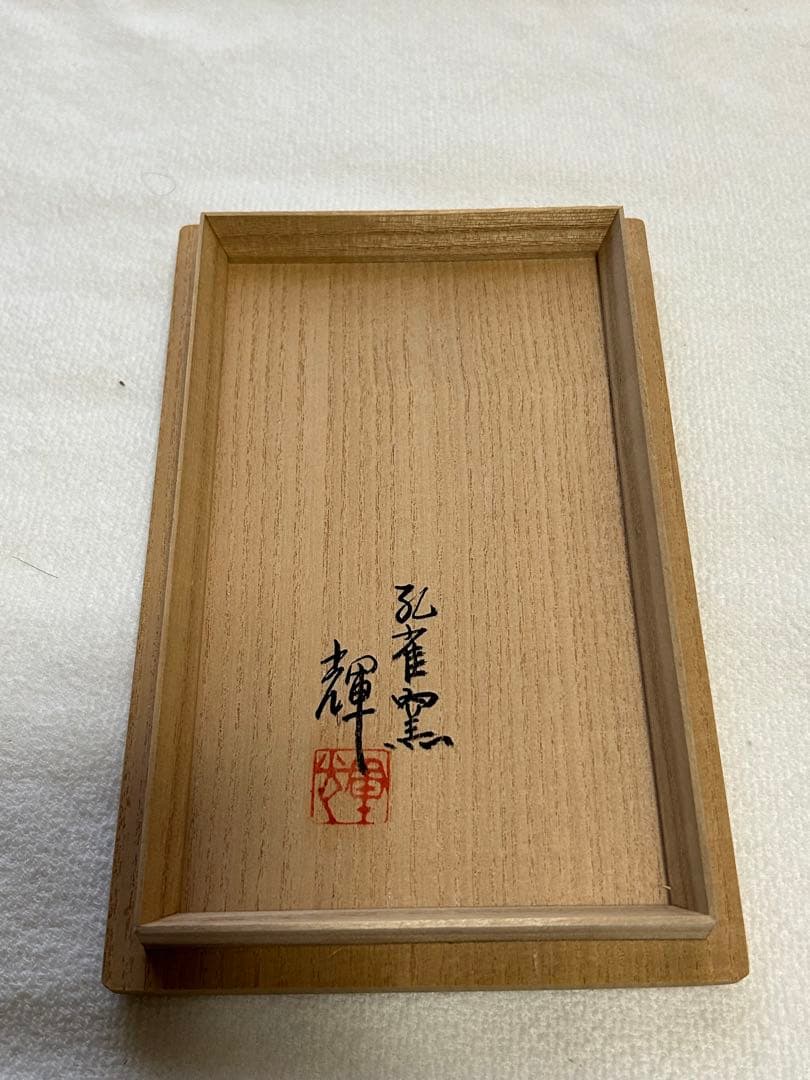 孔雀窯
輝
輝